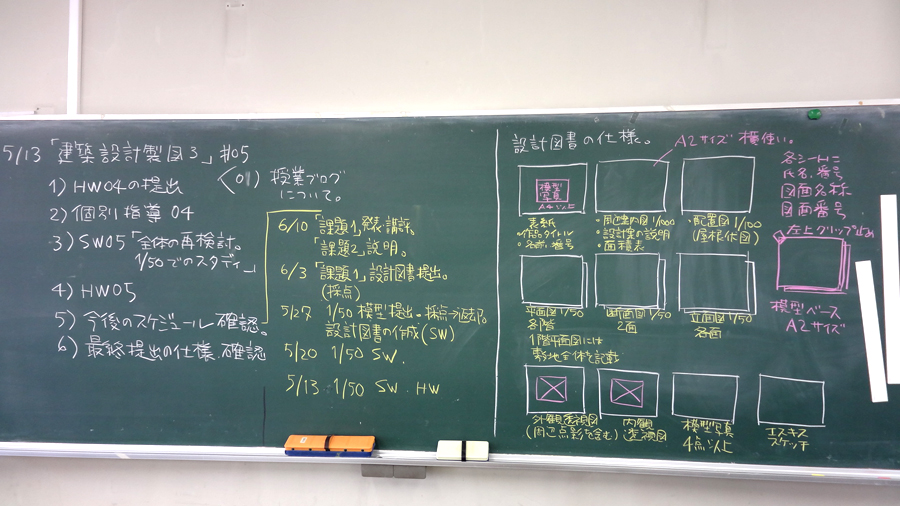 5/13 「建築設計製図3」 #05
01) 授業ブログ
について。
1) HW04の提出
2) 個別指導 04
3) SW05「全体の再検討。
1/50でのスタディー」
4) HW05
5) 今後のスケジュール確認。
6) 最終提出の仕様.確認
6/10 「課題1」発表・講評。
「課題2」説明。
6/3 「課題1」設計図書提出。
(採点)
5/27 1/50 模型提出・採点→返却。
設計図書の作成(SW)
5/20 1/50 SW.
5/13 1/50 SW . HW
設計図書の仕様。
A2サイズ 横使い。
模型
写真
A4以上
・表紙
・作品タイトル
・名前.番号
・周辺案内図
・設計案の説明
・面積表
・配置図 1/100
(屋根伏図)
各シートに
氏名.番号
図面名称
図面番号
左上クリップ止め
平面図 1/50
各階
1階平面図には
敷地全体を記載
断面図 1/50
2面
立面図 1/50
各面
模型ベース
A2サイズ
外観透視図
(周辺点景を含む)
内観
透視図
模型写真
4点以上
エスキス
スケッチ